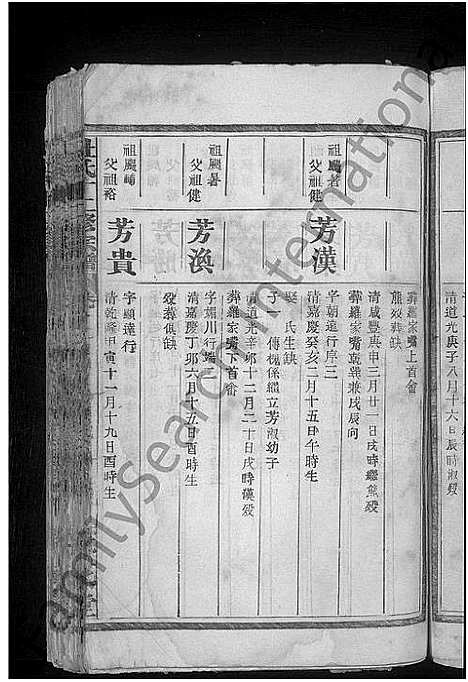 清道光庚子八月十六日辰時淑歿
葬羅家嘴上首會
熊歿葬缺
清咸豐庚申三月廿一日戌時繼熊歿
葬羅家嘴巽兼戊辰向
祖颺著
父祖健
芳漢
字朝達行序三
清嘉慶癸亥二月十五日午時生
娶 氏生缺
子一 傳槐係繼立芳淑幼子
清道光辛卯十二月二十日戌時漢歿
葬羅家嘴下首
祖颺暑
父祖健
芳渙
字媚川行
清嘉慶丁卯六月十五日酉時生
歿葬俱缺
祖颺
父祖裕
芳貴
字顯達行
清乾隆甲寅十一月十九日酉時生
杜氏
FamilySearch International